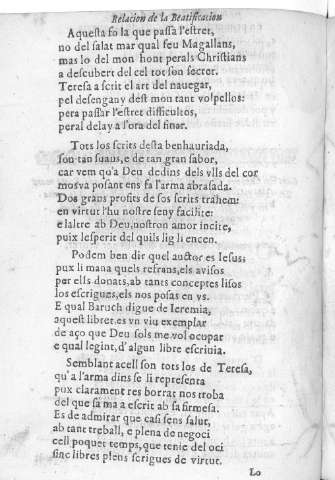 Relacion de la Beatificacion
Aquesta fo la que passa l'estret,
no del salat mar qual feu Magallans,
mas lo del mon hont perals Christians
a descubert del cel tot son secret.
Teresa a scrit el art del nauegar,
pel desengany dest mon tant volpellos:
pera passar l'estret difficultos,
peral delay a l'ora del finar.
Tots los scrits desta benhauriada,
son tan suaus, e de tan gran sabor,
car vem qu'a Deu dedins dels vlls del cor
mosva posant ens fa l'arma abrasada.
Dos grans profits de sos scrits trahem:
en virtut l'hu nostre seny facilite:
e laltre ab Deu, nostron amor incite,
puix lesperit del quils lig li encen.
Podem ben dir quel auctor es Iesus;
pux li mana quels refrans, els avisos
per ells donats, ab tants conceptes lisos
los escrigues, els nos posas en vs.
E qual Baruch digue de Ieremia,
aquest libret es vn viu exemplar
de aço que Deu sols me vol ocupar
e qual legint, d'algun libre escriuia.
Semblant acell son tots los de Teresa,
qu'a l'arma dins se li representa
pux clarament res borrat nos troba
del que sa mà a escrit ab sa firmesa.
Es de admirar que casi sens salut,
ab tant treball, e plena de negoci
cell poquet temps, que tenie del oci
sinc libres plens scrigues de virtut.
Lo